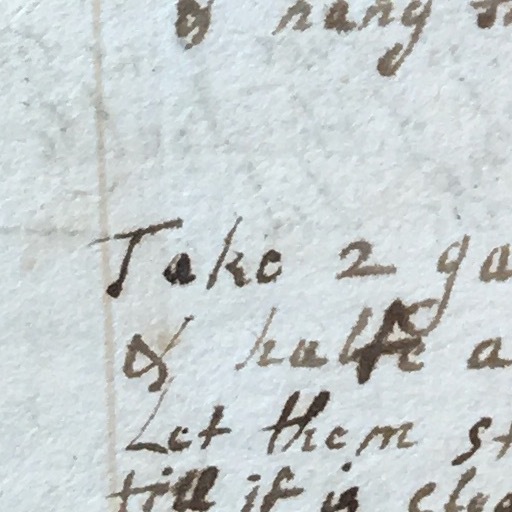 & hang
Take 2 ga
& halfe a
Let them st
till it is clea